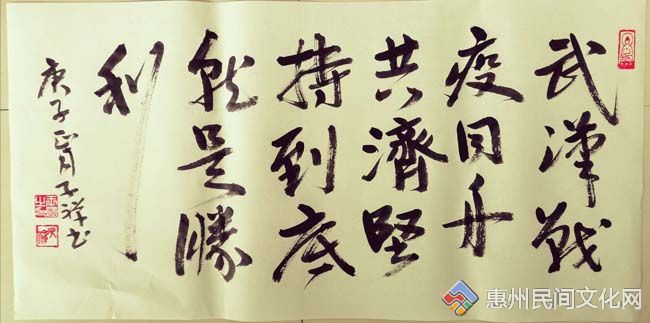 武漢戰
疫同舟
共濟堅
持到底
就是勝
利
庚子正月子祥书
惠州民间文化网